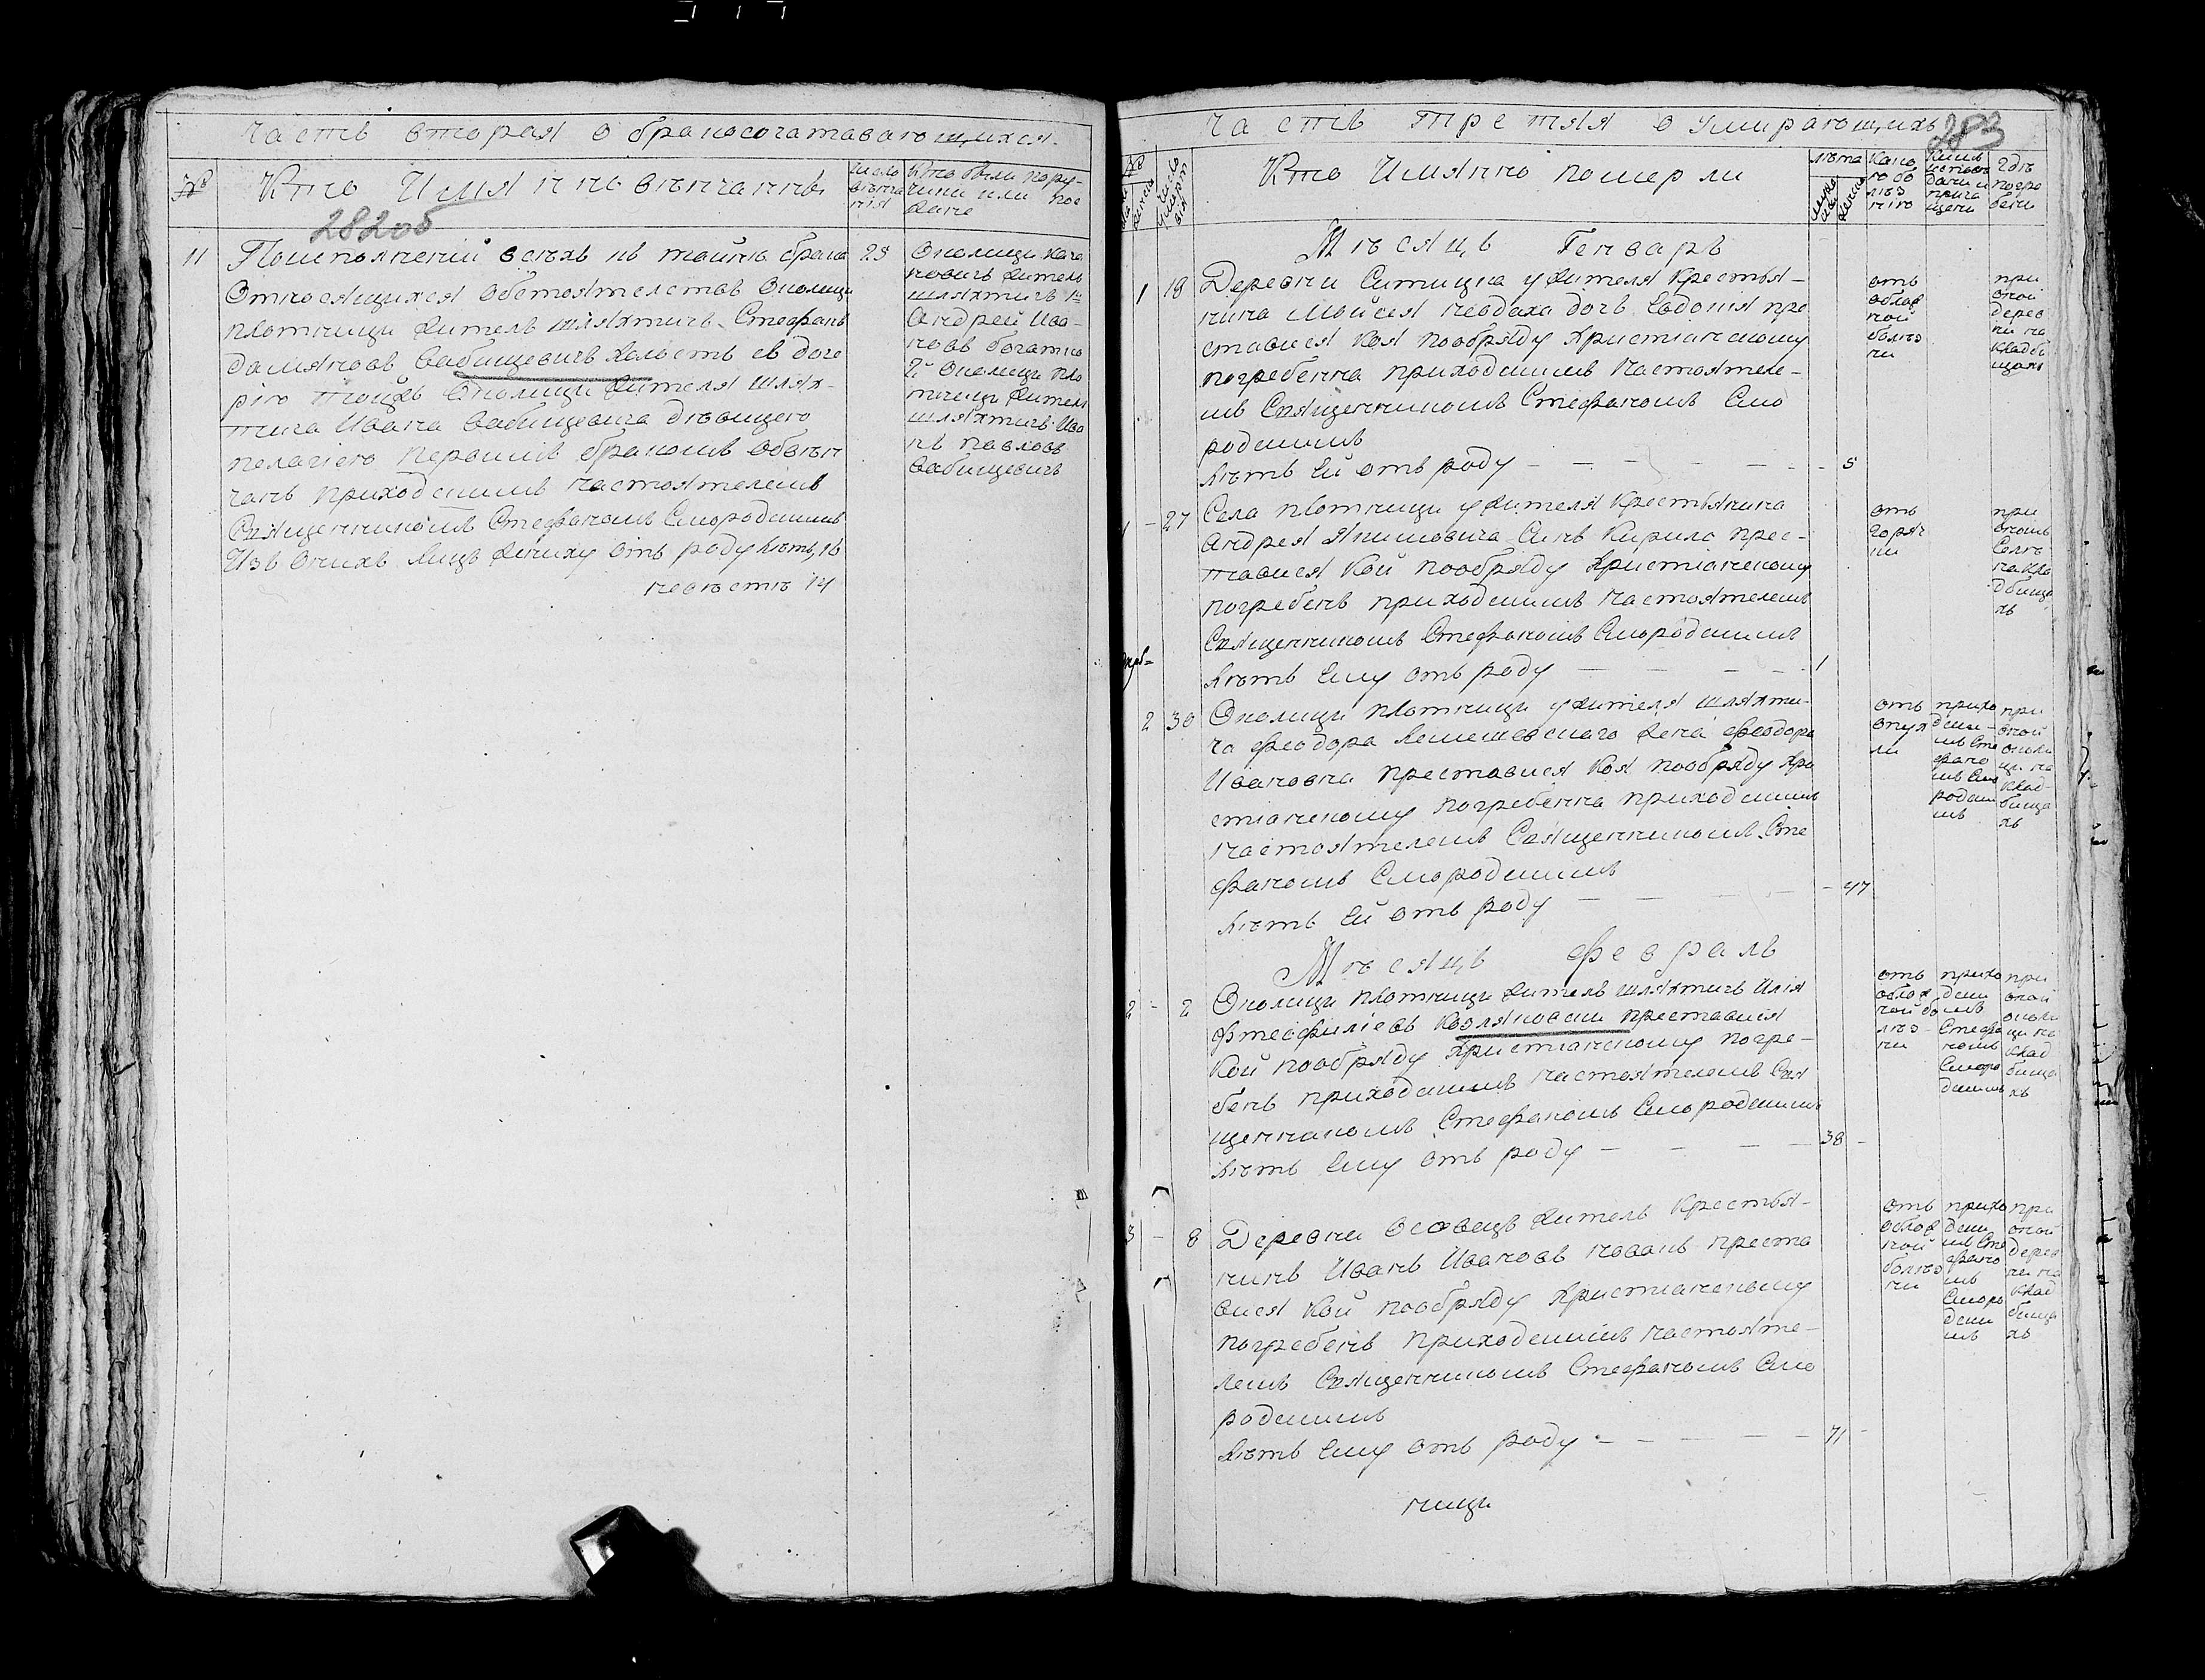 Часть вторая о бракосочатавающихся.
№
Кто Имянно вѣнчанны
Число вѣнча нія
Кто были пору-
чики или пое
зжане
282об
11
Поисполненіи всѣхъ къ тайнѣ брака
Относящихся Обстоятелствъ Околици
плотници житель шляхтичь Стефанъ
дамяновъ бабицевичь холостъ съ доче
рію тоейжъ Околици жителя шлях-
тича Ивана бабицевича дѣвицею
пелагіею первымъ бракомъ Обвѣн
чанъ приходскимъ настоятелемъ
Священникомъ Стефаномъ Смородскимъ
Изъ Онихъ лицъ жениху Отъ роду лѣтъ 16
невѣстѣ 14
Околици кача
новичь житель
шляхтичь 1й
Андрей Ива-
новъ богатко
2й Околици пло
тници житель
шляхтичь Ива
нъ павловъ
бабицевичь
Часть третяя о умирающихъ
283
№
Кто Имянно померли
лѣта
Како
ю бо
лѣз
нію
Кѣмъ
исповѣ
даны и
прича
щены
гдѣ
погре
бены
Мѣсяцъ Генварь
1 18
Деревни Ситицка ужителя крестья-
нина Мойсея невдаха дочь Евдокія пре
ставися коя пообряду христіанскому
погребенна приходскимъ настояте-
мъ Священникомъ Стефаномъ Смо
родскимъ
лѣтъ Ей отъ роду - - - - - - - 5
отъ
при
оной
дерев
ни на
кладби
щахъ
1 - 27
Села плотници ужителя крестьянина
Андрея Якимовича Синъ Кирило прес-
тавися кой пообряду христіанскому
погребенъ приходскимъ настоятелемъ
Священникомъ Стефаномъ Смородскимъ
лѣтъ Ему отъ роду - - - - 1
отъ
горяч
ки
при
ономъ
Селѣ
накла
дбища
хъ
2 30
Околици плотници ужителя шляхти-
ча феодора лемешевскаго жена феодора
Ивановна преставися коя пообряду хри
стіанскому погребенна приходскимъ
настоятелемъ Священникомъ Сте
фаномъ Смородскимъ
лѣтъ Ей отъ роду - - - - 47
отъ
опух
ли
прихо
дски-
мъ Сте
фано
мъ Смо
родски
мъ
при
оной
околи
ци на
клад-
бища
хъ
Мѣсяцъ февраль
2 - 2
Околици плотници житель шляхтичь Илія
фтеофиліевъ Козляковски преставися
кой пообряду христіанскому погре-
бенъ приходскимъ настоятелемъ Свя
щенникомъ Стефаномъ Смородскимъ
лѣтъ Ему отъ роду - - - - 38 -
отъ
прихо
дски
мъ
Стефа
номъ
Смиро
дскимъ
при
оной
околи
ци на
клад
бища
хъ
3 - 8
Деревни Осовецъ житель крестья-
нинъ Иванъ Ивановъ преста
вися кой пообряду христіанскому
погребенъ приходскимъ настояте-
лемъ Священникомъ Стефаномъ Смо
родскимъ
лѣтъ Ему отъ роду - - - - - 71 -
отъ
прихо
дски
мъ Сте
фано
мъ
Смиро
дски
мъ
при
оной
дерев
ни на
клад
бища
хъ